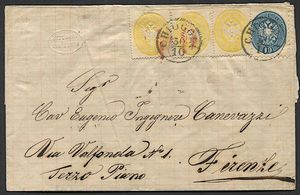 CHIOGGIA
30
10
Sigr
Cav Eugenio Ingegnere Canevazzi
Via Valfonda No 1.
Terzo Piano
Firenze